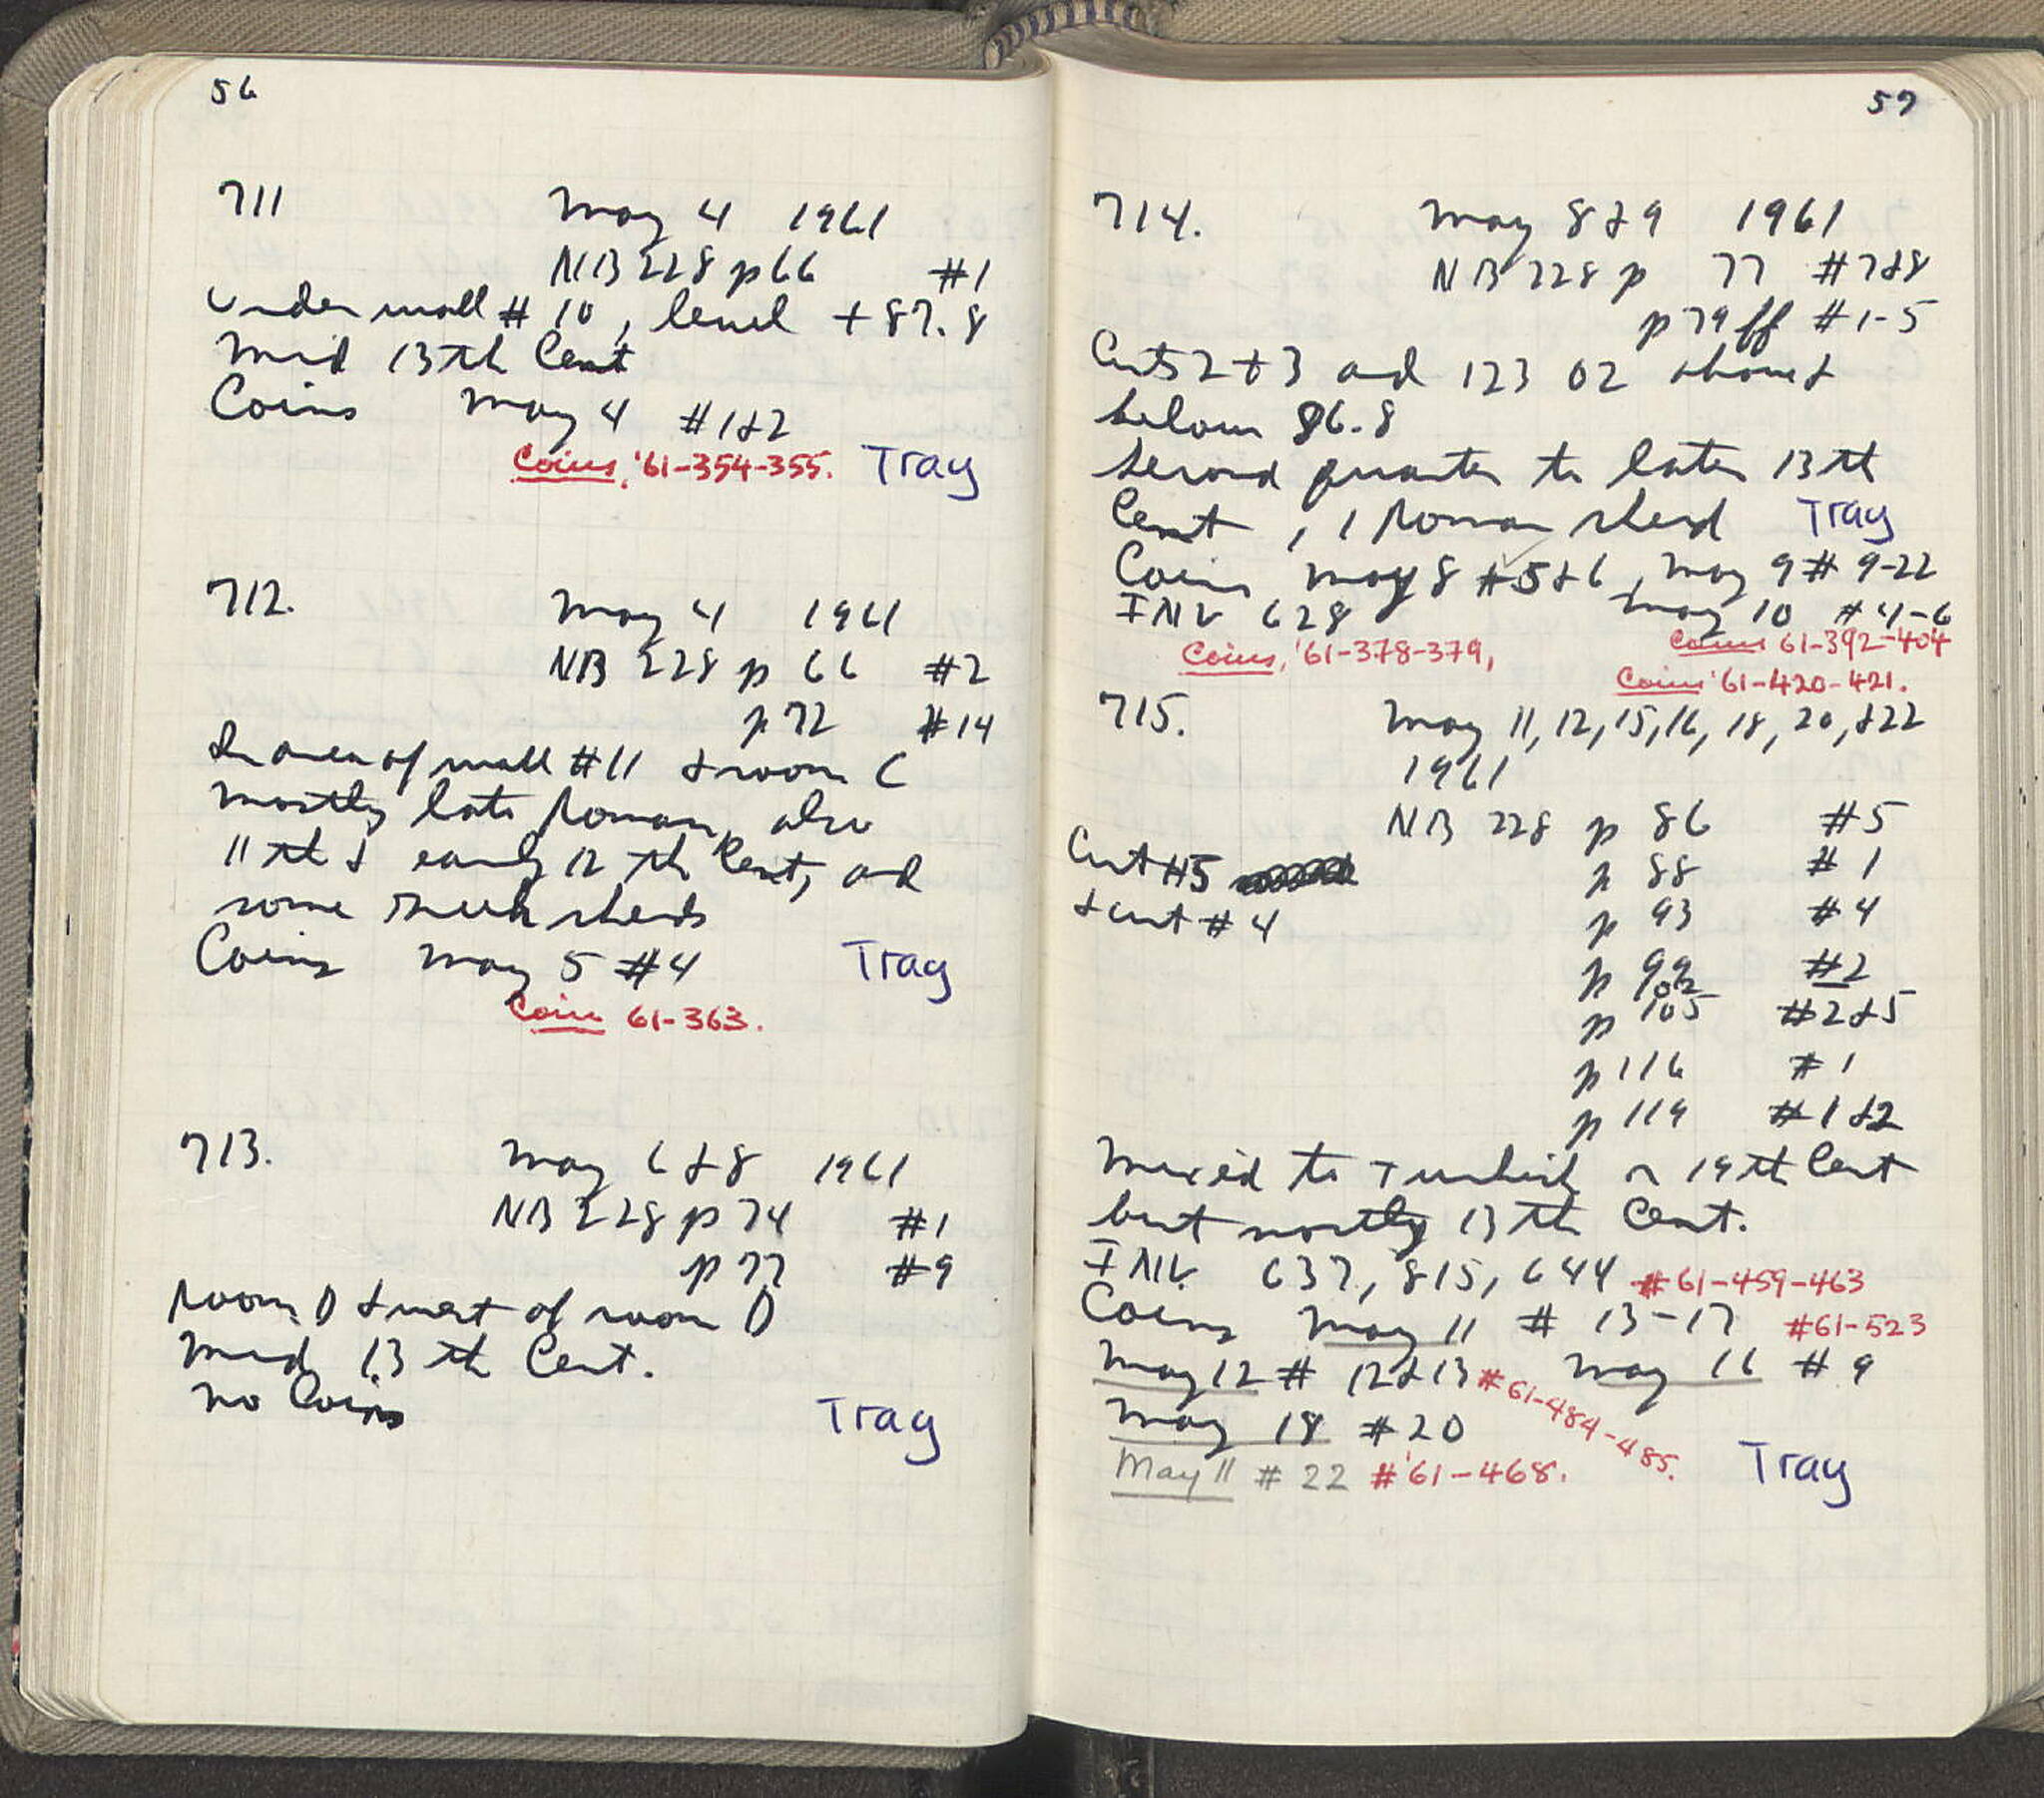 56
711 May 4 1961
NB 228 p 66 #1
Under wall # 10, level + 87.8
Mid 13th Cent
Coins May 4 #1&2
Coins, '61-354-355. Tray
712. May 4 1961
NB 228 p 66 #2
p 72 #14
In area of wall #11 & room C
Mostly late Roman, also
11th & early 12th Cent, and
some Greek sherds
Coins May 5 #4 Tray
Coin 61-363.
713. May 6&8 1961
NB 228 p 74 #1
p 77 #9
Room D & west of room D
Mid 13th Cent.
No Coins
Tray
57
714. May 8&9 1961
NB 228 p 77 #7&8
p 79ff #1-5
Cuts 2 + 3 and above &
below 86.8
Second quarter to later 13th
Cent, 1 Roman sherd Tray
Coins May 8 #5&6, May 9 # 9-22
INV 628 May 10 #4-6
Coins, '61-378-379, Coins 61-392-404
Coins '61-420-421.
715. May 11, 12, 15, 16, 18, 20, &22
1961
NB 228 p 86 #5
Cut #5 p 88 #1
& cut # 4 p 93 #4
p 99 #2
p 105 #2&5
p 116 #1
p 119 #1&2
Mixed to Turkish 19th Cent
but mostly 13th Cent.
INV. 637, 815, 644 #61-459-463
Coins May 11 # 13-17 #61-523
May 12 # 12&13 #61-484-485. May 16 # 9
May 18 #20
May 11 # 22 #'61-468. Tray